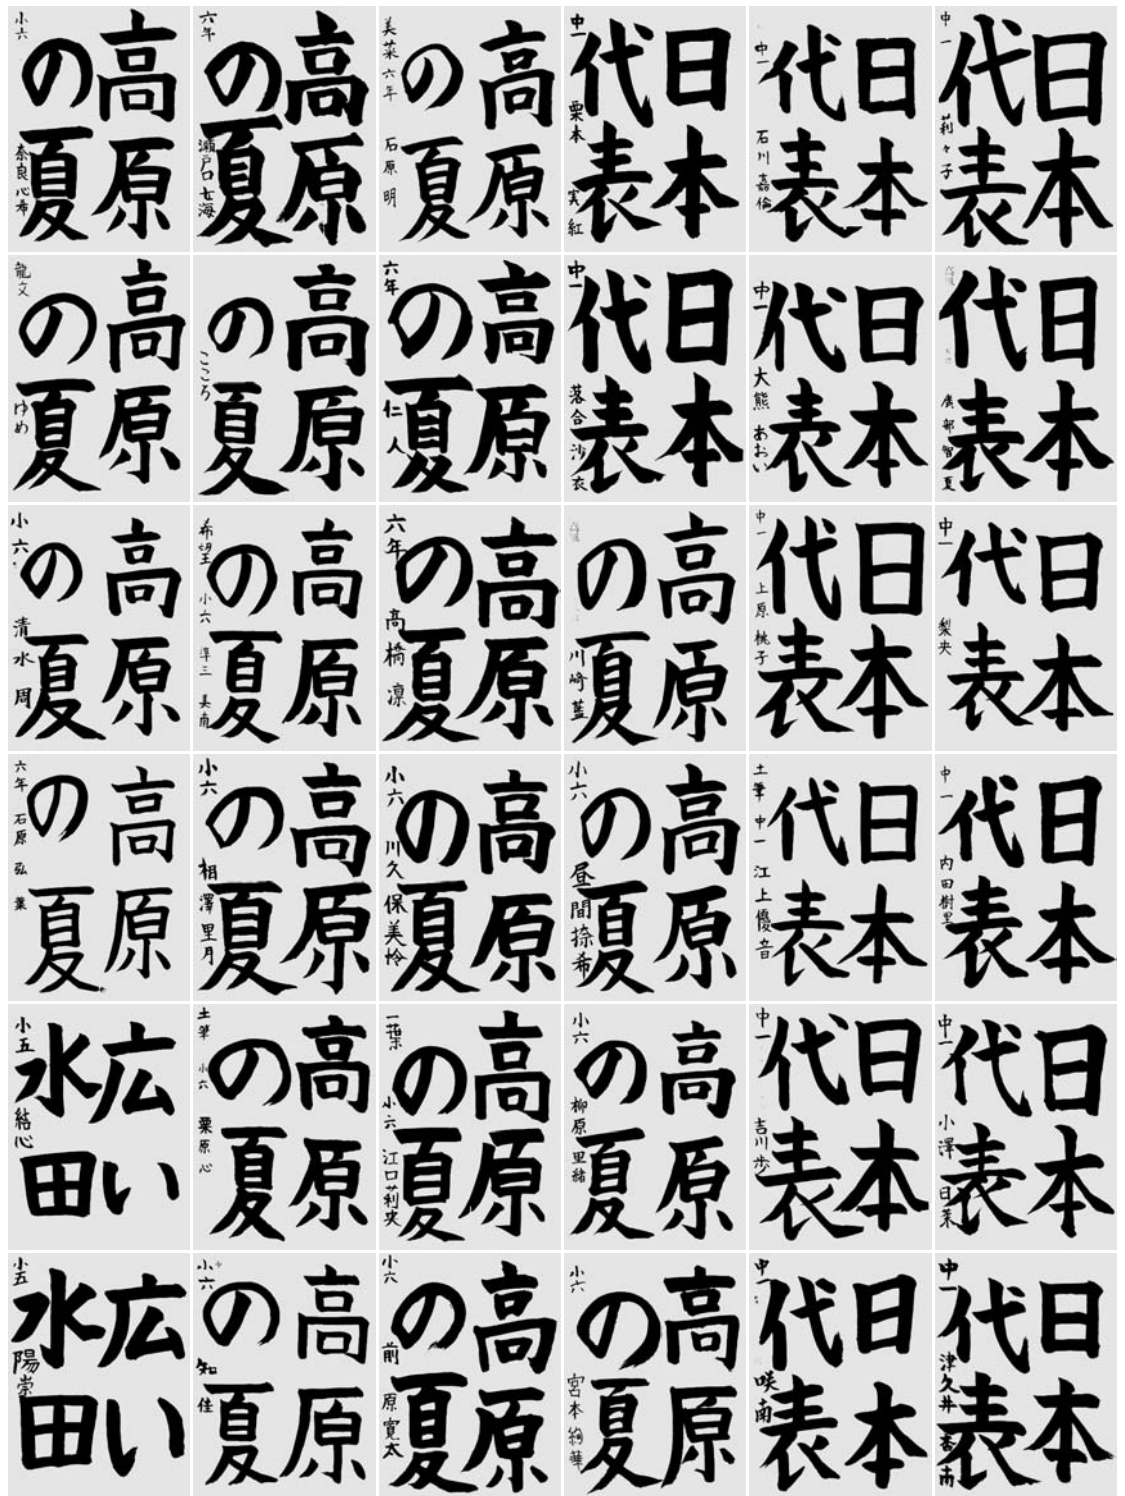 高原
の夏
小六 奈良心希
高原
の夏
六年 瀬戸口七海
高原
の夏
美菜 六年 石原 明
日本
代表
中一 栗本 実紅
日本
代表
中一 石川 嘉倫
日本
代表
中一 莉々子
高原
の夏
龍文 ゆめ
高原
の夏
こころ
高原
の夏
六年 仁人
日本
代表
中一 落合沙衣
日本
代表
中一 大熊 あおい
日本
代表
廣部智夏
高原
の夏
小六 清水 周
高原
の夏
希望 小六 美南
高原
の夏
六年 高橋 凛
高原
の夏
川崎 藍
日本
代表
中一 上原 桃子
日本
代表
中一 梨央
高原
の夏
六年 石原 弘葉
高原
の夏
小六 相澤里月
高原
の夏
小六 川久保美怜
高原
の夏
小六 昼間捺希
日本
代表
土筆 中一 江上優音
日本
代表
中一 内田樹里
広い
水田
小五 結心
高原
の夏
土筆 小六 栗原 心
高原
の夏
一葉 小六 江口莉央
高原
の夏
小六 柳原 里緒
日本
代表
中一 吉川 歩
日本
代表
中一 小澤 日茉
広い
水田
小五 陽崇
高原
の夏
小六 知佳
高原
の夏
小六 前原 寛太
高原
の夏
小六 宮本 絢華
日本
代表
中一 咲南
日本
代表
中一 津久井 杏南